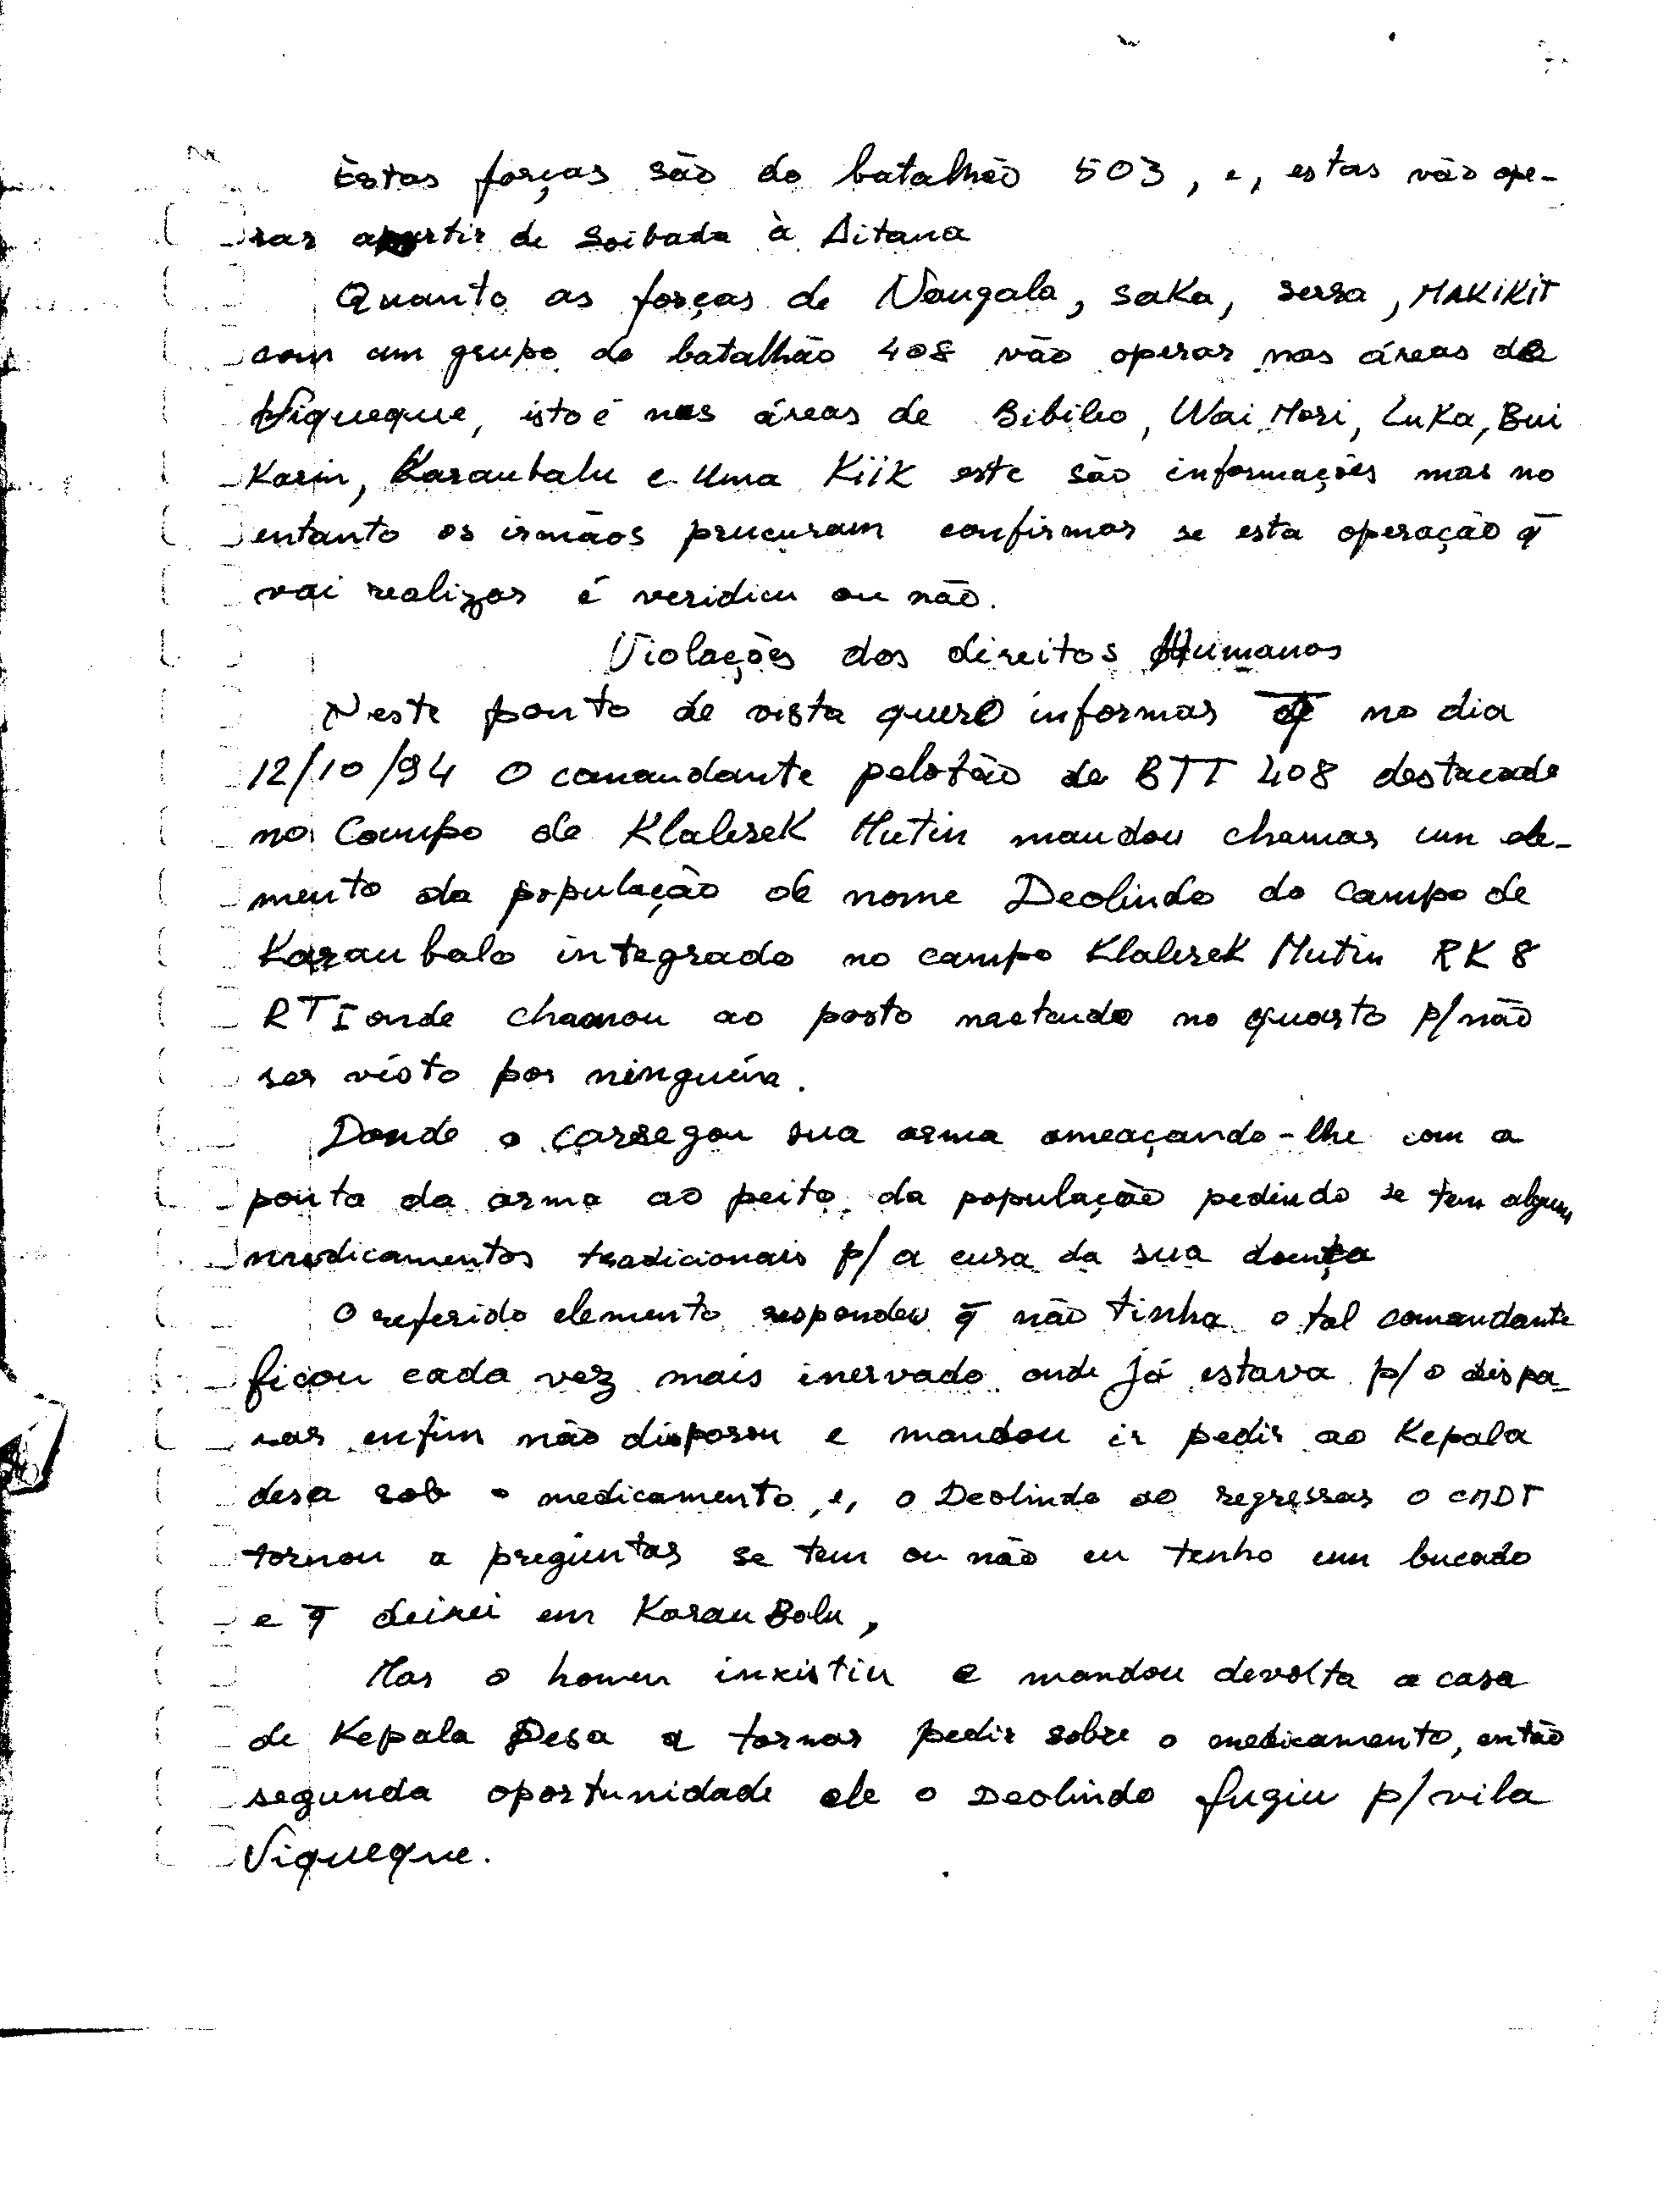 Estas forças são do batalhão 503, e, estas vão ope-
rar apartir de Soibada à Aitana
Quanto as forças de Nangala, Saka, Sera, MAKIKIT
com um grupo do batalhão 408 vão operar nas áreas de
Viqueque, isto é nas áreas de Bibileo, Wai Mori, Luka, Bui
Karin, Karaubalu e Uma Kiik este são informações mas no
entanto os irmãos prucuram confirmar se esta operação q̄
vai realizar é veridicu ou não.
Violações dos direitos Humanos
Neste ponto de vista quero informar q̄ no dia
12/10/94 O comandante pelotão de BTT 408 destacado
no Campo de Klalerek Mutin mandou chamar um ele-
mento da população de nome Deolindo do Campo de
Karaubalo integrado no campo Klalerek Mutin RK 8
RTI onde chamou ao posto metendo no quarto p/ não
ser visto por ninguém.
Donde o carregou sua arma ameaçando-lhe com a
ponta da arma ao peito da população pedindo se tem alguns
medicamentos tradicionais p/ a cura da sua doença
O referido elemento respondeu q̄ não tinha o tal comandante
ficou cada vez mais inervado onde já estava p/ o dispa-
rar enfim não disparou e mandou ir pedir ao Kepala
desa sob o medicamento, e, o Deolindo ao regressar o CMDT
tornou a preguntar se tem ou não eu tenho um bucado
e q̄ deixei em Karau Balu,
Mas o homem inxistiu e mandou devolta a casa
de Kepala Desa a tornar pedir sobre o medicamento, então
segunda oportunidade ele o Deolindo fugiu p/ vila
Viqueque.